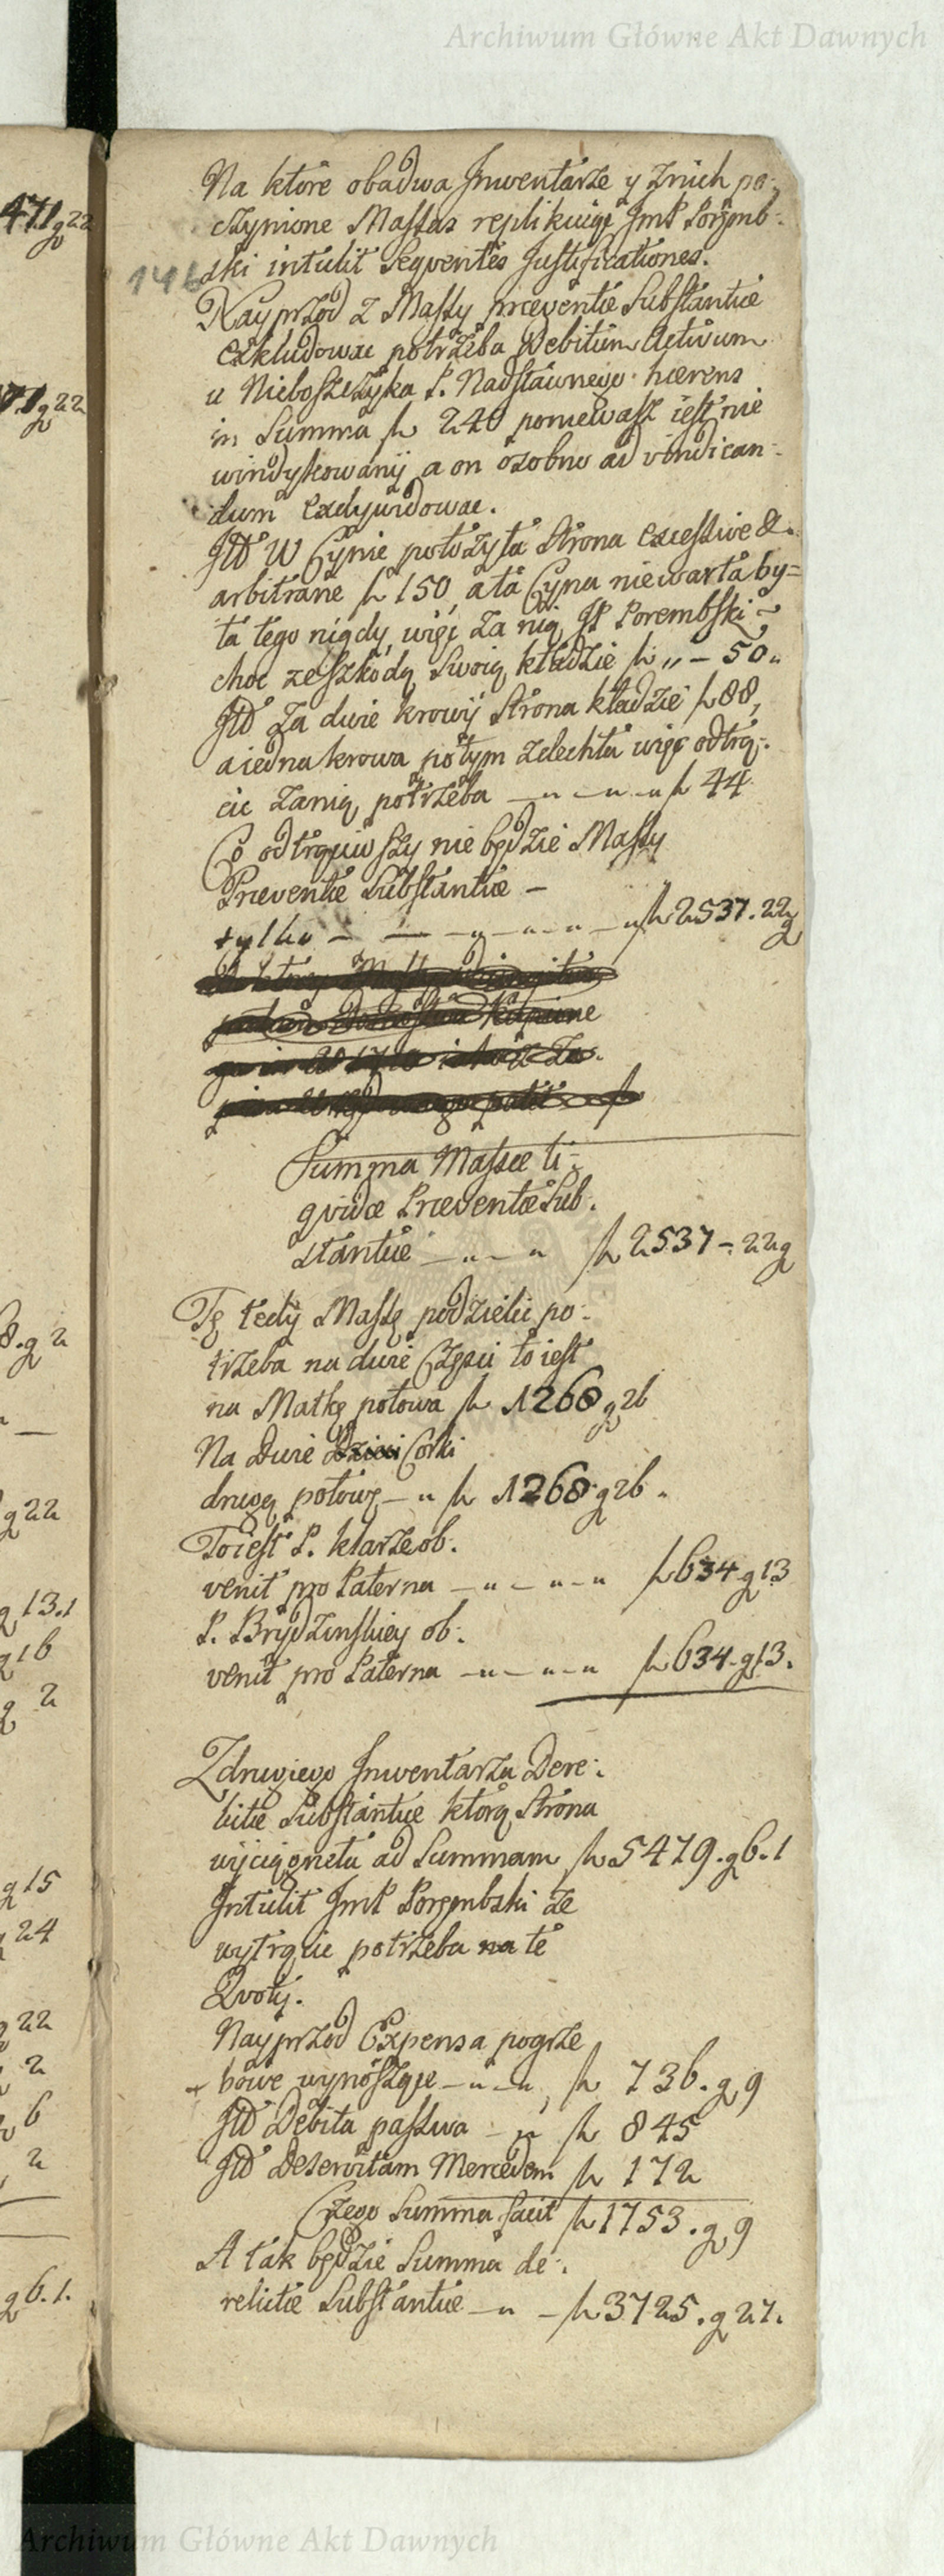 Archiwum Główne Akt Dawnych
Na ktore obadwa Inwentarze y znich po-
czynione Massas replikuiąc JmP Poręmb-
ski intulit seqventes Justificationes.
146
Nayprzod z Massy præventæ Substantiæ
exkludowac potrzeba Debitum Activum
u Nieboszczyka P. Nadstawnego hærens
in Summa fl 240 poniewasz iest nie
windykowany a on osobno ad vindican-
dum exdywidowac.
Itd W Cynie położyła Strona excessive &
arbitrarie fl 150, a ta Cyna niewarta by=
ła tego nigdy, więc za nię JP Porembski
choc ze szkodą swoią kładzie fl „ – 50„
Itd za dwie krowy Strona kładzie fl 88,
a iedna krowa potym zdechła więc odtrą-
cic zanię potrzeba – „ – „ – „ fl 44
Co odtrąciwszy nie będzie Massy
Præventæ Substantiæ –
tylko – – – „ – „ – „ – „ fl 2537. 22g
Summa Massæ li-
qvidæ Præventæ Sub-
stantiæ – „ – „ fl 2537 – 22g
Tę tedy Massę podzielic po-
trzeba na dwie Częsci to iest
na Matkę połowa fl 1268 g 26
Na Dwie Dzieci Corki
drugą połowę – „ fl 1268 g 26.
To iest P. Klarze ob-
venit pro Paterna – „ – „ – „ fl 634 g 13
P. Brydzinskiey ob-
venit pro Paterna – „ – „ – „ fl 634 g 13.
Zdrugiego Inwentarza Dere-
lictæ Substantiæ ktorą Strona
wyciągneła ad Summam fl 5479. g 6. 1
Intulit JmP Poręmbski ze
wytrącic potrzeba na te
Qvoty.
Nayprzod Expensa pogrze
bowe wynoszące – „ – „ fl 736. g 9
Itd Debita passiva – „ fl 845
Itd Deservitam Mercedem fl 172
Czego Summa facit fl 1753. g 9
A tak będzie Summa de-
relictæ Substantiæ – „ – fl 3725. g 27.
Archiwum Główne Akt Dawnych